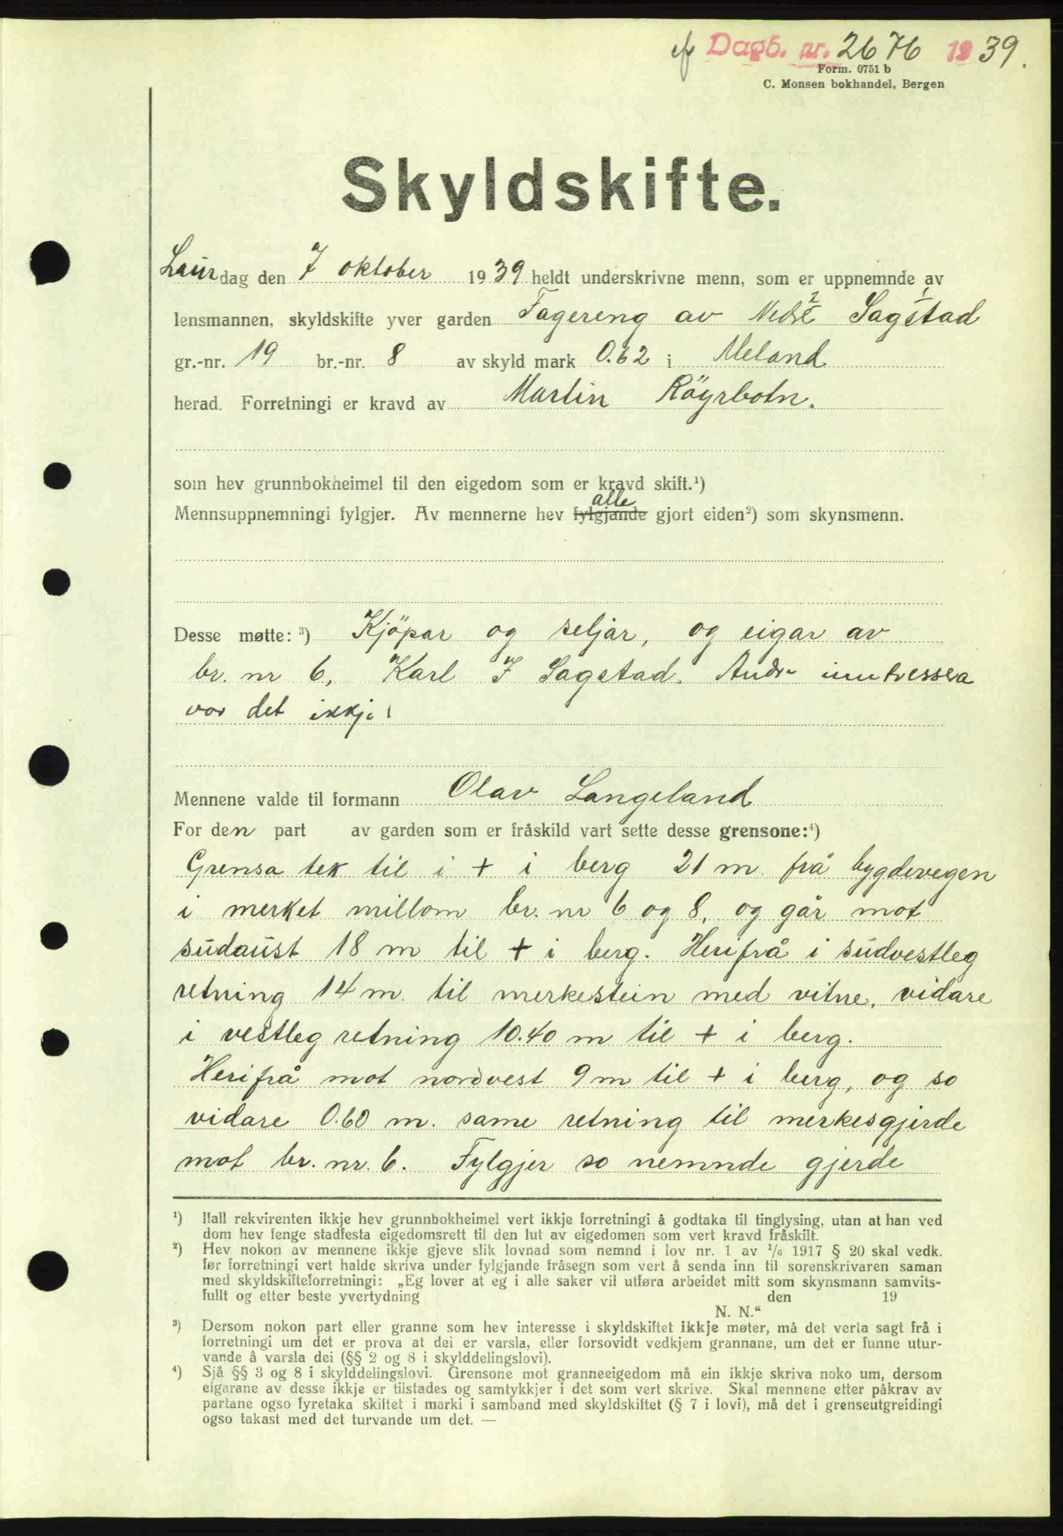 Dagb. nr. 2676 1939.
Form. 0751 b
C. Monsen bokhandel, Bergen
Skyldskifte.
Laurdag den 7 oktober 1939 heldt underskrivne menn, som er uppnemnde av
lensmannen, skyldskifte yver garden Fagereng av Nedre Sagstad
gr.-nr. 19 br.-nr. 8 av skyld mark 0.62 i Meland
herad. Forretningi er kravd av Martin Röyrbotn.
som hev grunnbokheimel til den eigedom som er kravd skift.¹)
alle
Mennsuppnemningi fylgjer. Av mennerne hev fylgjande gjort eiden²) som skynsmenn.
Desse møtte: ³) Kjöpar og seljar, og eigar av
br. nr 6, Karl J Sagstad. Andre inntressea
var det ikkje.
Mennene valde til formann Olav Langeland
For den part av garden som er fråskild vart sette desse grensone:⁴)
Grensa tek til i + i berg 21 m frå bygdevegen
i merket millom br. nr 6 og 8, og går mot
südaust 18 m til + i berg. Herifrå i südvestleg
retning 14 m. til merkestein med vitne, vidare
i vestleg retning 10.40 m til + i berg.
Herifrå mot nordvest 9 m til + i berg, og so
vidare 0.60 m. same retning til merkesgjerde
mot br. nr. 6. Fylgjer so nemnde gjerde
¹) Hall rekvirenten ikkje hev grunnbokheimel vert ikkje forretningi å godtaka til tinglysing, utan at han ved
dom hev fenge stadfesta eigedomsrett til den lut av eigedomen som vert kravd fråskilt.
²) Hev nokon av mennene ikkje gjeve slik lovnad som nemnd i lov nr. 1 av ¹/₆ 1917 § 20 skal vedk.
før forretningi vert halde skriva under fylgjande fråsegn som vert å senda inn til sorenskrivaren saman
med skyldskifteforretningi: „Eg lover at eg i alle saker vil utføra arbeidet mitt som skynsmann samvits-
fullt og etter beste yvertydning den 19
N. N.“
³) Dersom nokon part eller granne som hev interesse i skyldskiftet ikkje møter, må det verta sagt frå i
forretningi um det er prova at dei er varsla, eller forsovidt vedkjem grannane, um det er funne utur-
vande å varsla dei (§§ 2 og 8 i skylddelingslovi).
⁴) Sjå §§ 3 og 8 i skylddelingslovi. Grensone mot granneeigedom må ein ikkje skriva noko um, dersom
eigarane av desse ikkje er tilstades og samtykkjer i det som vert skrive. Skal mennene etter påkrav av
partane ogso fyretaka skiftet i marki i samband med skyldskiftet (§ 7 i lovi), må det i grenseutgreidingi
ogso takast med det turvande um det. —